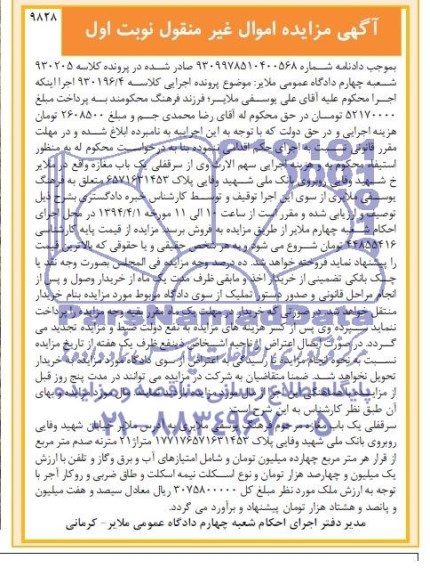 ۹۸۲۸
آگهی مزایده اموال غیر منقول نوبت اول
بموجب دادنامه شماره ۹۳۰۹۹۷۸۵۱۰۴۰۰۵۶۸ صادر شده در پرونده کلاسه ۹۳۰۲۰۵
شعبه چهارم دادگاه عمومی ملایر: موضوع پرونده اجرایی کلاسه ۹۳۰۱۹۶/۴ اجرا اینکه
اجرا محکوم علیه آقای علی یوسفی ملایر: فرزند فرهنگ محکومند به پرداخت مبلغ
۵۲۱۷۰۰۰۰ تومان در حق محکوم له آقای رضا محمدی جم و مبلغ ۲۶۰۸۵۰۰ تومان
هزینه اجرایی و در حق دولت که با توجه به این اجراییه به نامبرده ابلاغ شده و در مهلت
مقرر قانونی نسبت به اجرای حکم اقدامی ننموده بنا به درخواست محکوم له به منظور
استیفاء محکوم به و هزینه اجرایی سهم الارث وی از سرقفلی یک باب مغازه واقع در ملایر
خ شهید وفایی روبروی بانک ملی شهید وفایی پلاک ۶۵۷۱۶۳۱۴۵۳ متعلق به فرهنگ
یوسفی ملایری از سوی این اجرا توقیف و توسط کارشناس خبره دادگستری بشرح ذیل
توصیف و ارزیابی شده و مقرر است از ساعت ۱۰ الی ۱۱ مورخه ۱۳۹۴/۴/۱ در محل اجرای
احکام شعبه چهارم ملایر از طریق مزایده به فروش برسد. مزایده از قیمت پایه کارشناسی
۴۴۸۵۵۴۱۶ تومان شروع می شود و به هر شخص حقیقی و یا حقوقی که بالاترین قیمت
را پیشنهاد نماید فروخته خواهد شد. ده درصد وجه مزایده فی المجلس بصورت وجه نقد یا
چک بانکی تضمینی از خریدار اخذ و مابقی ظرف مدت یک ماه از خریدار وصول و پس از
انجام مراحل قانونی و صدور دستور تملیک از سوی دادگاه مربوط مورد مزایده بنام خریدار
منتقل خواهد شد. در صورتی که خریدار در مهلت یک ماه مقرر بقیه وجه مزایده را پرداخت
ننماید سپرده وی پس از کسر هزینه های مزایده به نفع دولت ضبط و مزایده تجدید می
گردد. در صورت ایصال اعتراض از ناحیه اشخاص ذینفع ظرف یک هفته از تاریخ مزایده
نسبت به نحوه انجام مزایده تا رسیدگی به اعتراض از سوی دادگاه مورد مزایده به خریدار
تحویل نخواهد شد. ضمنا متقاضیان به شرکت در مزایده می توانند در مدت پنج روز قبل
از مزایده با هماهنگی این اجرا از مال مورد مزایده بازدید نمایند. مال مورد مزایده و بهای
آن طبق نظر کارشناس به این شرح است:
سرقفلی یک باب مغازه مرحوم فرهنگ یوسفی ملایری به آدرس ملایر خیابان شهید وفایی
روبروی بانک ملی شهید وفایی پلاک ۱۷۷۱۷۶۵۷۱۶۳۱۴۵۳ متراژ ۲۱ متر نه صدم متر مربع
از قرار هر متر مربع چهارده میلیون تومان و شامل امتیازهای آب و برق وگاز و تلفن با ارزش
یک میلیون و چهارصد هزار تومان و نوع اسکلت نیمه اسکلت و طاق ضربی و روکار آجر با
توجه به ارزش ملک مورد نظر مبلغ کل ۳۰۷۵۸۰۰۰۰۰ ریال معادل سیصد و هفت میلیون
و پانصد و هشتاد هزار تومان پیشنهاد و برآورد می گردد.
مدیر دفتر اجرای احکام شعبه چهارم دادگاه عمومی ملایر - کرمانی
پایگاه اطلاع رسانی مناقصه و مزایده
۰۲۱-۸۸۳۴۹۶۷۰-۵